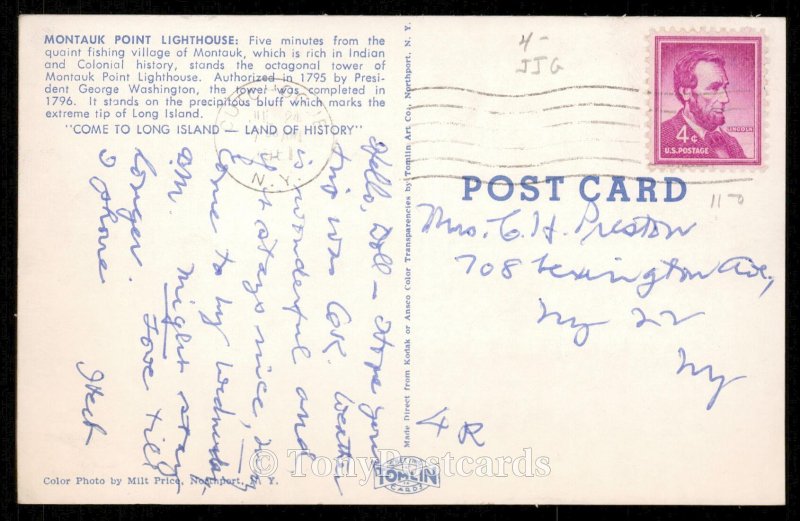 MONTAUK POINT LIGHTHOUSE: Five minutes from the
quaint fishing village of Montauk, which is rich in Indian
and Colonial history, stands the octagonal tower of
Montauk Point Lighthouse. Authorized in 1795 by Presi-
dent George Washington, the tower was completed in
1796. It stands on the precipitous bluff which marks the
extreme tip of Long Island.
"COME TO LONG ISLAND — LAND OF HISTORY"
Hello, Doll — Hope your
trip was O.K. Weather
is wonderful and
if it stays nice, may
come to by Wednesday
a.m. Might stay
longer. Love till
I phone
N. Y.
Color Photo by Milt Price, Northport, N. Y.
Made Direct from Kodak or Ansco Color Transparencies by Tomlin Art Co., Northport, N. Y.
TOMLIN
CARDS
4-
JJG
4¢
LINCOLN
U.S. POSTAGE
POST CARD
11-0
Mrs. C. H. Preston
708 Lexington Ave,
NY 22
NY
4 R
© TonyPostcards